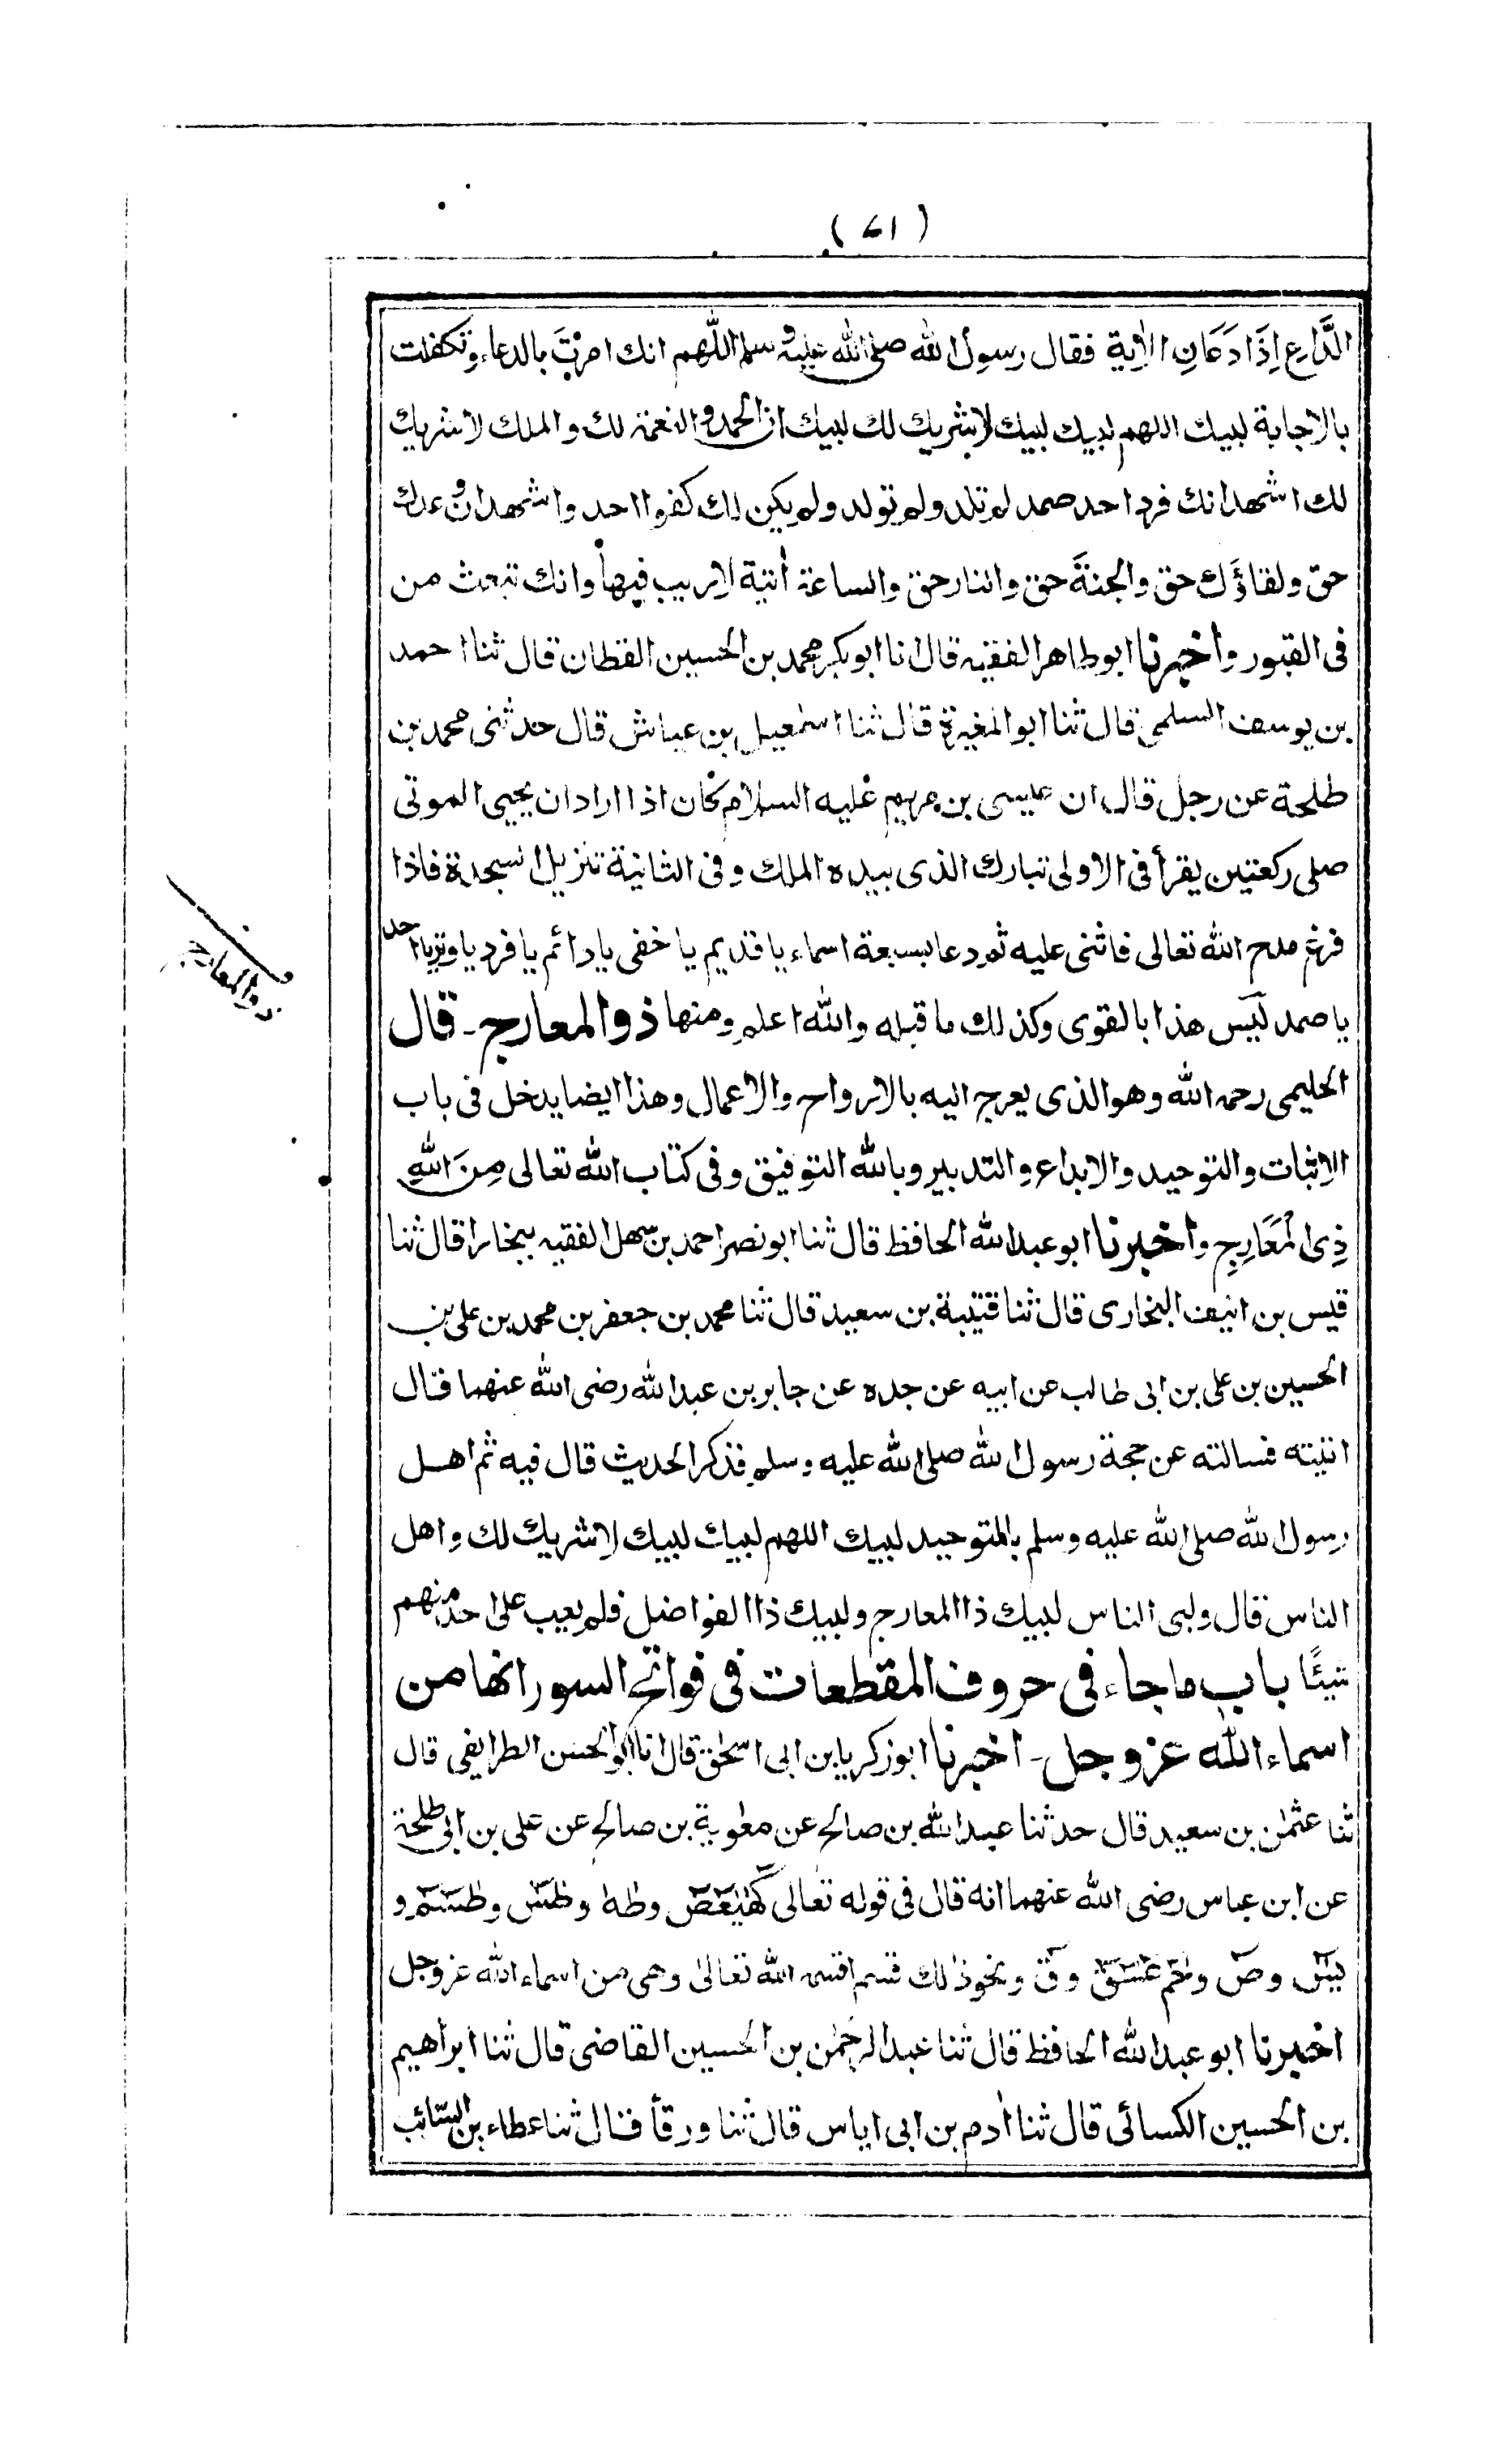 (٧١)
الدَّاعِ إِذَا دَعَانِ الاٰية فقال رسول الله صلى الله عليه وسلم اللّٰهم انك امرتَ بالدعاء وتكفلت
بالاجابة لبيك اللهم لبيك لبيك لا شريك لك لبيك ان الحمد والنعمة لك والملك لا شريك
لك اشهد انك فرد احد صمد لم تلد ولم تولد ولم يكن لك كفوا احد واشهد ان وعدك
حق ولقاؤك حق والجنةَ حق والنار حق والساعة اٰتية لا ريب فيها وانك تبعث من
فى القبور واخبرنا ابو طاهر الفقيه قال انا ابو بكر محمد بن الحسين القطان قال ثنا احمد
بن يوسف السلمى قال ثنا ابو المغيرة قال ثنا اسمٰعيل بن عياش قال حدثنى محمد بن
طلحة عن رجل قال ان عيسى بن مريم عليه السلام كان اذا اراد ان يحيى الموتى
صلى ركعتين يقرأ فى الاولى تبارك الذى بيده الملك وفى الثانية تنزيل السجدة فاذا
فرغ مدح الله تعالى فاثنى عليه ثم دعا بسبعة اسماء يا قديم يا خفى يا دائم يا فرد يا وتر يا احد
يا صمد ليس هذا بالقوى وكذلك ما قبله والله اعلم ومنها ذو المعارج ـ قال
ذو المعارج
الحليمى رحمه الله وهو الذى يعرج اليه بالارواح والاعمال وهذا ايضا يدخل فى باب
الاثبات والتوحيد والابداع والتدبير وبالله التوفيق وفى كتاب الله تعالى مِنَ اللهِ
ذِى الْمَعَارِجِ واخبرنا ابو عبد الله الحافظ قال ثنا ابو نصر احمد بن سهل الفقيه ببخارا قال ثنا
قيس بن انيف البخارى قال ثنا قتيبة بن سعيد قال ثنا محمد بن جعفر بن محمد بن على بن
الحسين بن على بن ابى طالب عن ابيه عن جده عن جابر بن عبد الله رضى الله عنهما قال
اتيته فسالته عن حجة رسول الله صلى الله عليه وسلم فذكر الحديث قال فيه ثم اهل
رسول الله صلى الله عليه وسلم بالتوحيد لبيك اللهم لبيك لبيك لا شريك لك واهل
الناس قال ولبى الناس لبيك ذا المعارج ولبيك ذا الفواضل فلم يعب على احد منهم
شيئًا باب ما جاء فى حروف المقطعات فى فواتح السور انها من
اسماء الله عز وجل ـ اخبرنا ابو زكريا بن ابى اسحٰق قال انا ابو الحسن الطرايفى قال
ثنا عثمٰن بن سعيد قال حدثنا عبد الله بن صالح عن معٰوية بن صالح عن على بن ابى طلحة
عن ابن عباس رضى الله عنهما انه قال فى قوله تعالى كٓهٰيٰعٓصٓ وطٰهٰ وطٰسٓ وطٰسٓمٓ و
يٰسٓ وصٓ وحٰمٓ عٓسٓقٓ وقٓ ونحو ذٰلك قسم اقسم الله تعالىٰ وهى من اسماء الله عز وجل
اخبرنا ابو عبد الله الحافظ قال ثنا عبد الرحمٰن بن الحسين القاضى قال ثنا ابراهيم
بن الحسين الكسائى قال ثنا اٰدم بن ابى اياس قال ثنا ورقأ قال ثنا عطاء بن السّائب